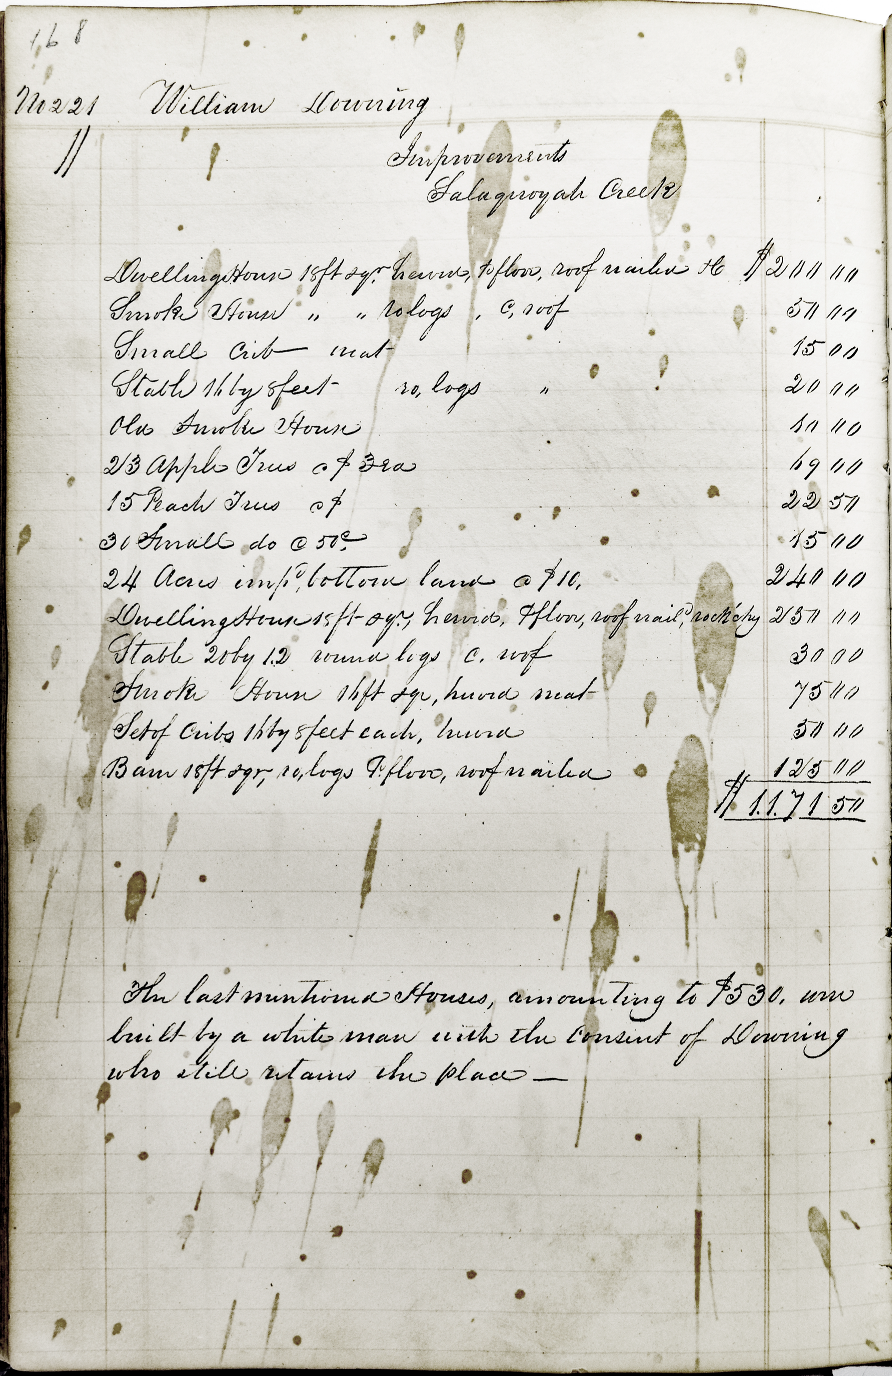 168
No 221 William Downing
Improvements
Salaquoyah Creek
Dwelling House 18ft sqr. hewed, P. floor, roof nailed &c $200 00
Smoke House " " ro logs , C, roof 50 00
Small Crib neat 15 00
Stable 16 by 8 feet ro, logs " 20 00
Old Smoke House 10 00
23 Apple Trees @ $3 ea 69 00
15 Peach Trees @ $ 22 50
30 Small do @ 50c. 15 00
24 Acres imp'd, bottom land @ $10, 240 00
Dwelling House 18ft sqr, hewed, P floor, roof nail'd, rock chy 250 00
Stable 20 by 12 round logs C. roof 30 00
Smoke House 16ft sqr, hewed neat 75 00
Set of Cribs 16 by 8 feet each, hewed 50 00
Barn 18ft sqr, ro, logs P. floor, roof nailed 125 00
$1.171 50
The last mentioned Houses, amounting to $530. were
built by a white man with the Consent of Downing
who still retains the place —